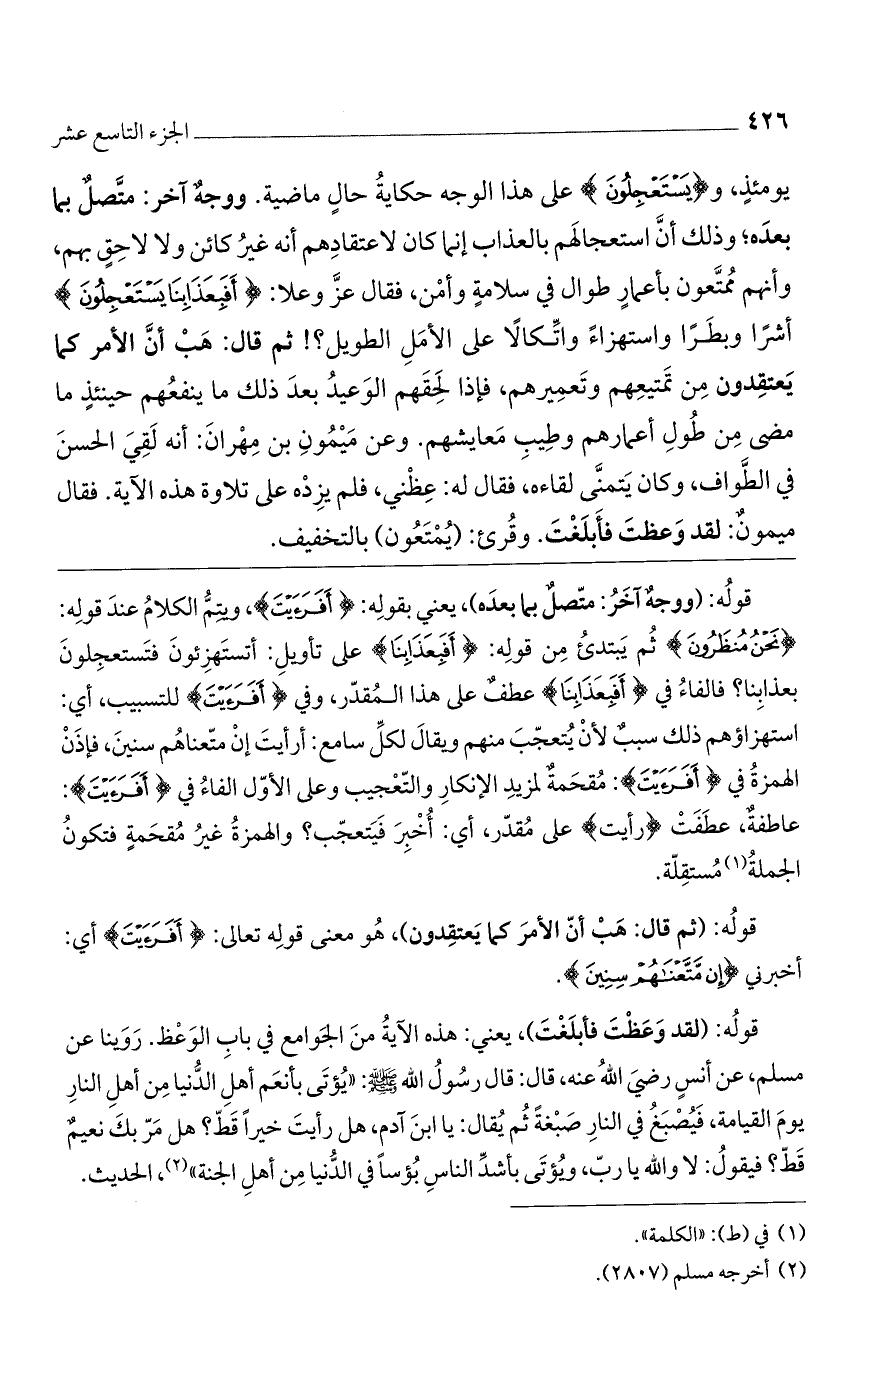 ٤٢٦ الجزء التاسع عشر
يومئذٍ، و﴿يَسْتَعْجِلُونَ﴾ على هذا الوجه حكايةُ حالٍ ماضية. ووجهٌ آخر: متَّصلٌ بما
بعدَه؛ وذلك أنَّ استعجالَهم بالعذاب إنما كان لاعتقادِهم أنه غيرُ كائن ولا لاحِقٍ بهم،
وأنهم مُمتَّعون بأعمارٍ طوال في سلامةٍ وأمْن، فقال عزَّ وعلا: ﴿أَفَبِعَذَابِنَا يَسْتَعْجِلُونَ﴾
أشرًا وبطَرًا واستهزاءً واتِّكالًا على الأمَلِ الطويل؟! ثم قال: هَبْ أنَّ الأمر كما
يَعتقِدون مِن تَمتيعِهم وتَعمِيرهم، فإذا لَحِقَهم الوَعيدُ بعدَ ذلك ما ينفعُهم حينئذٍ ما
مضى مِن طُولِ أعمارهم وطِيبِ مَعايشهم. وعن مَيْمُونِ بن مِهْرانَ: أنه لَقِيَ الحسنَ
في الطَّواف، وكان يَتمنَّى لقاءه، فقال له: عِظْني، فلم يزِدْه على تلاوة هذه الآية. فقال
ميمونٌ: لقد وَعظتَ فأَبلَغْتَ. وقُرئ: (يُمْتَعُون) بالتخفيف.
قولُه: (ووجهٌ آخَرُ: متّصلٌ بما بعدَه)، يعني بقولِه: ﴿أَفَرَءَيْتَ﴾، ويتمُّ الكلامُ عندَ قولِه:
﴿نَحْنُ مُنظَرُونَ﴾ ثُم يَبتدئُ مِن قولِه: ﴿أَفَبِعَذَابِنَا﴾ على تأويلِ: أتستَهزِئونَ فتَستعجِلونَ
بعذابِنا؟ فالفاءُ في ﴿أَفَبِعَذَابِنَا﴾ عطفٌ على هذا المُقدّر، وفي ﴿أَفَرَءَيْتَ﴾ للتسبيب، أي:
استهزاؤهم ذلك سببٌ لأنْ يُتعجّبَ منهم ويقالَ لكلِّ سامع: أرأيتَ إنْ متّعناهُم سنينَ، فإذَنْ
الهمزةُ في ﴿أَفَرَءَيْتَ﴾: مُقحَمةٌ لمزيدِ الإنكارِ والتّعْجيب وعلى الأوّل الفاءُ في ﴿أَفَرَءَيْتَ﴾:
عاطفةٌ، عطَفَتْ ﴿رأيت﴾ على مُقدّر، أي: أُخْبِرَ فَيَتعجّب؟ والهمزةُ غيرُ مُقحَمةٍ فتكونُ
الجملةُ(١) مُستقِلّة.
قولُه: (ثم قال: هَبْ أنّ الأمرَ كما يَعتقِدون)، هُو معنى قولِه تعالى: ﴿أَفَرَءَيْتَ﴾ أي:
أخبرني ﴿إِن مَّتَّعْنَٰهُمْ سِنِينَ﴾.
قولُه: (لقد وَعَظْتَ فأبلَغْتَ)، يعني: هذه الآيةُ منَ الجَوامع في بابِ الوَعْظ. رَوَينا عن
مسلم، عن أنسٍ رضيَ اللهُ عنه، قال: قال رسُولُ الله ﷺ: «يُؤتَى بأنعَم أهلِ الدُّنيا مِن أهلِ النارِ
يومَ القيامة، فَيُصْبَغُ في النارِ صَبْغةً ثُم يُقال: يا ابنَ آدم، هل رأيتَ خيراً قَطّ؟ هل مَرّ بكَ نعيمٌ
قَطّ؟ فيقولُ: لا والله يا ربّ، ويُؤتَى بأشدِّ الناسِ بُؤساً في الدُّنيا مِن أهلِ الجنة»(٢)، الحديث.
(١) في (ط): «الكلمة».
(٢) أخرجه مسلم (٢٨٠٧).